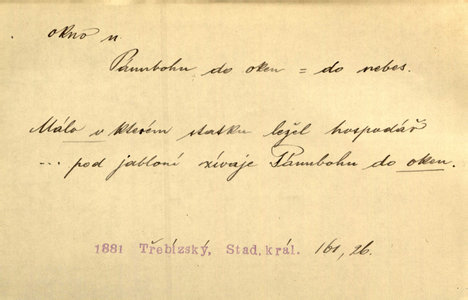 okno n.
Pánubohu do oken = do nebes.
Málo v kterém statku ležel hospodář
... pod jabloní zívaje Pánubohu do oken.
1881 Třebízský, Stad. král. 161, 26.